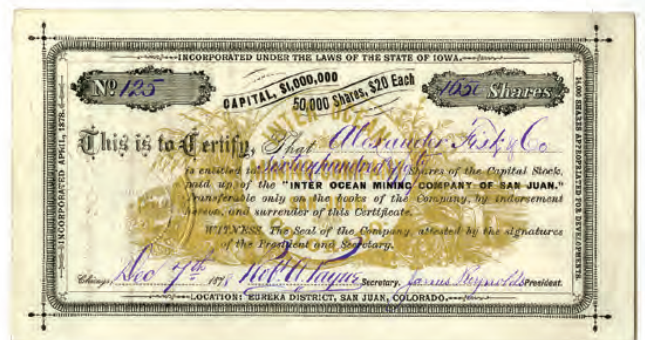 INCORPORATED UNDER THE LAWS OF THE STATE OF IOWA.
No 125
CAPITAL, $1,000,000
50,000 Shares, $20 Each
1650 Shares
INCORPORATED APRIL, 1878.
14,000 SHARES APPROPRIATED FOR DEVELOPMENTS.
This is to Certify, That Alexander Fisk & Co
is entitled to Sixteen hundred & fifty Shares of the Capital Stock,
paid up, of the "INTER OCEAN MINING COMPANY OF SAN JUAN."
Transferable only on the books of the Company, by indorsement
hereon, and surrender of this Certificate.
WITNESS The Seal of the Company, attested by the signatures
of the President and Secretary.
Chicago, Dec 7th 1878 Robt A Payne Secretary. James Reynolds President.
LOCATION: EUREKA DISTRICT, SAN JUAN, COLORADO.